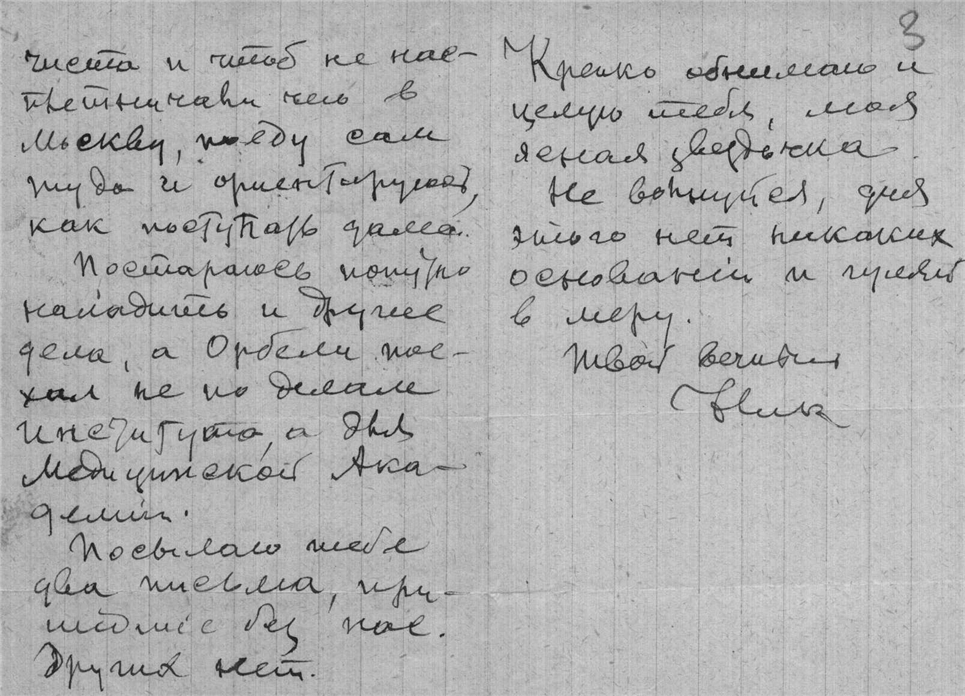 чиста и чтоб не нас-
чего в
Москву, поѣду сам
туда и ориентируюсь,
как поступать далее.
Постараюсь попутно
наладить и другие
дела, а Орбели пое-
хал не по делам
Института, а для
Медицинской Ака-
деміи.
Посылаю тебе
два письма, при-
шедшіе без нас.
Других нет.
3
Крепко обнимаю и
целую тебя, моя
ясная звездочка.
Не волнуйся, для
этого нет никаких
основаній и гуляй
в меру.
Твой вечный